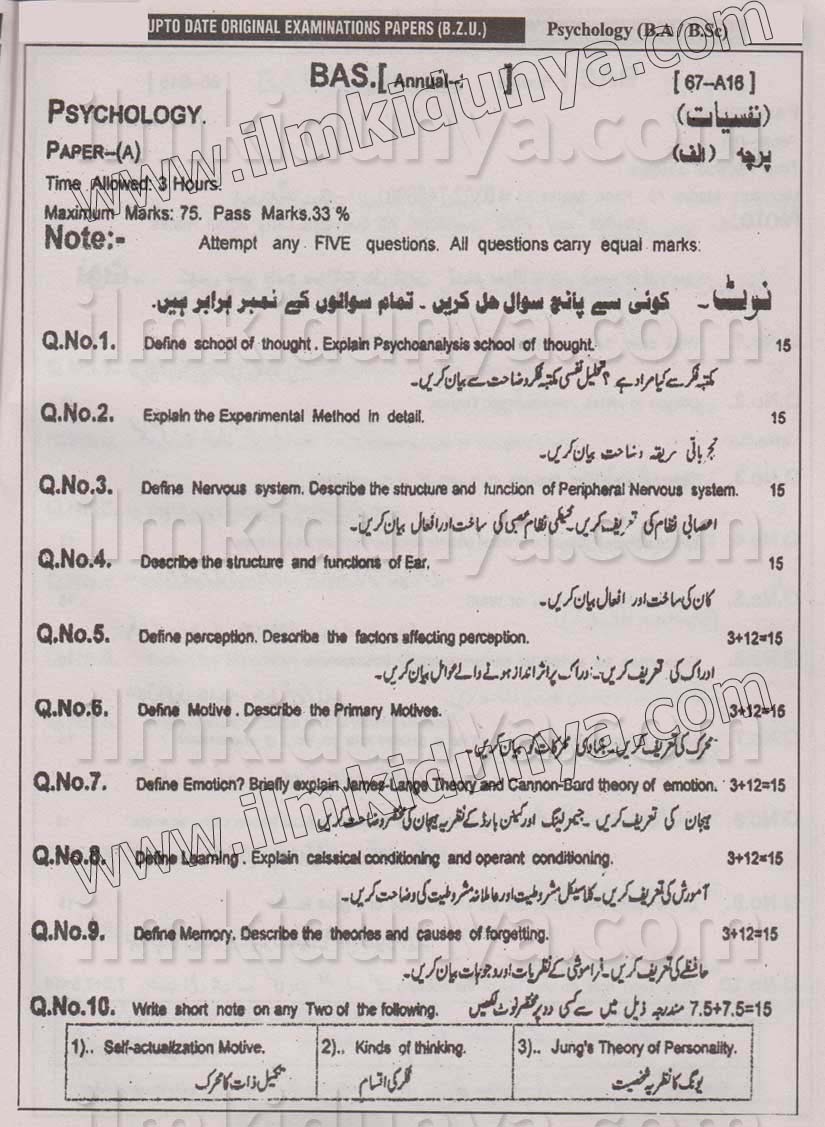 UPTO DATE ORIGINAL EXAMINATIONS PAPERS (B.Z.U.) Psychology (B.A / B.Sc)
BAS.[ Annual-- ] [ 67--A16 ]
PSYCHOLOGY. (نفسیات)
PAPER--(A) پرچہ (الف)
Time Allowed: 3 Hours.
Maximum Marks: 75. Pass Marks.33 %
Note:- Attempt any FIVE questions. All questions carry equal marks:
نوٹ۔ کوئی سے پانچ سوال حل کریں ۔ تمام سوالوں کے نمبر برابر ہیں۔
Q.No.1. Define school of thought . Explain Psychoanalysis school of thought. 15
مکتبہ فکر سے کیا مراد ہے ؟ تحلیل نفسی مکتبہ فکر وضاحت سے بیان کریں۔
Q.No.2. Explain the Experimental Method in detail. 15
تجرباتی ریقہ وضاحت بیان کریں۔
Q.No.3. Define Nervous system. Describe the structure and function of Peripheral Nervous system. 15
اعصابی نظام کی تعریف کریں۔ محیطی نظام عصبی کی ساخت اور افعال بیان کریں۔
Q.No.4. Describe the structure and functions of Ear. 15
کان کی ساخت اور افعال بیان کریں۔
Q.No.5. Define perception. Describe the factors affecting perception. 3+12=15
ادراک کی تعریف کریں۔ ادراک پر اثر انداز ہونے والے عوامل بیان کریں۔
Q.No.6. Define Motive . Describe the Primary Motives. 3+12=15
محرک کی تعریف کریں۔ بنیادی محرکات کو بیان کریں۔
Q.No.7. Define Emotion? Briefly explain James-Lange Theory and Cannon-Bard theory of emotion. 3+12=15
ہیجان کی تعریف کریں ۔ جیمز لینگ اور کینن بارڈ کے نظریہ ہیجان کی مختصر وضاحت کریں
Q.No.8. Define Learning . Explain calssical conditioning and operant conditioning. 3+12=15
آموزش کی تعریف کریں۔ کلاسیکل مشروطیت اور عاملانہ مشروطیت کی وضاحت کریں۔
Q.No.9. Define Memory. Describe the theories and causes of forgetting. 3+12=15
حافظے کی تعریف کریں۔ فراموشی کے نظریات اور وجوہات بیان کریں۔
Q.No.10. Write short note on any Two of the following. مندرجہ ذیل میں سے کسی دو پر مختصر نوٹ لکھیں 7.5+7.5=15
1).. Self-actualization Motive. 2).. Kinds of thinking. 3).. Jung's Theory of Personality.
تکمیل ذات کا محرک فکر کی اقسام یونگ کا نظریہ شخصیت
www.ilmkidunya.com
www.ilmkidunya.com
ilmkidunya.com
ilmkidunya.com
ilmkidunya.com
ilmkidunya.com
ilmkidunya.com
ilmkidunya.com